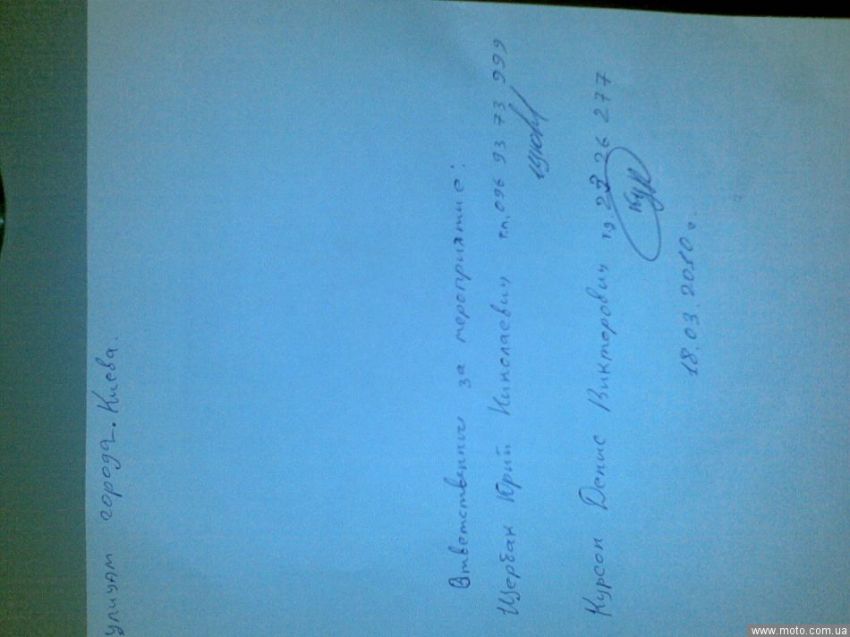 улицам города. Киева.
Ответственние за мероприятие:
Щербак Юрий Николаевич т.п. 096 93 73 999
Курсон Денис Викторович 26 277
Кур
18.03.2010 г.
www.moto.com.ua